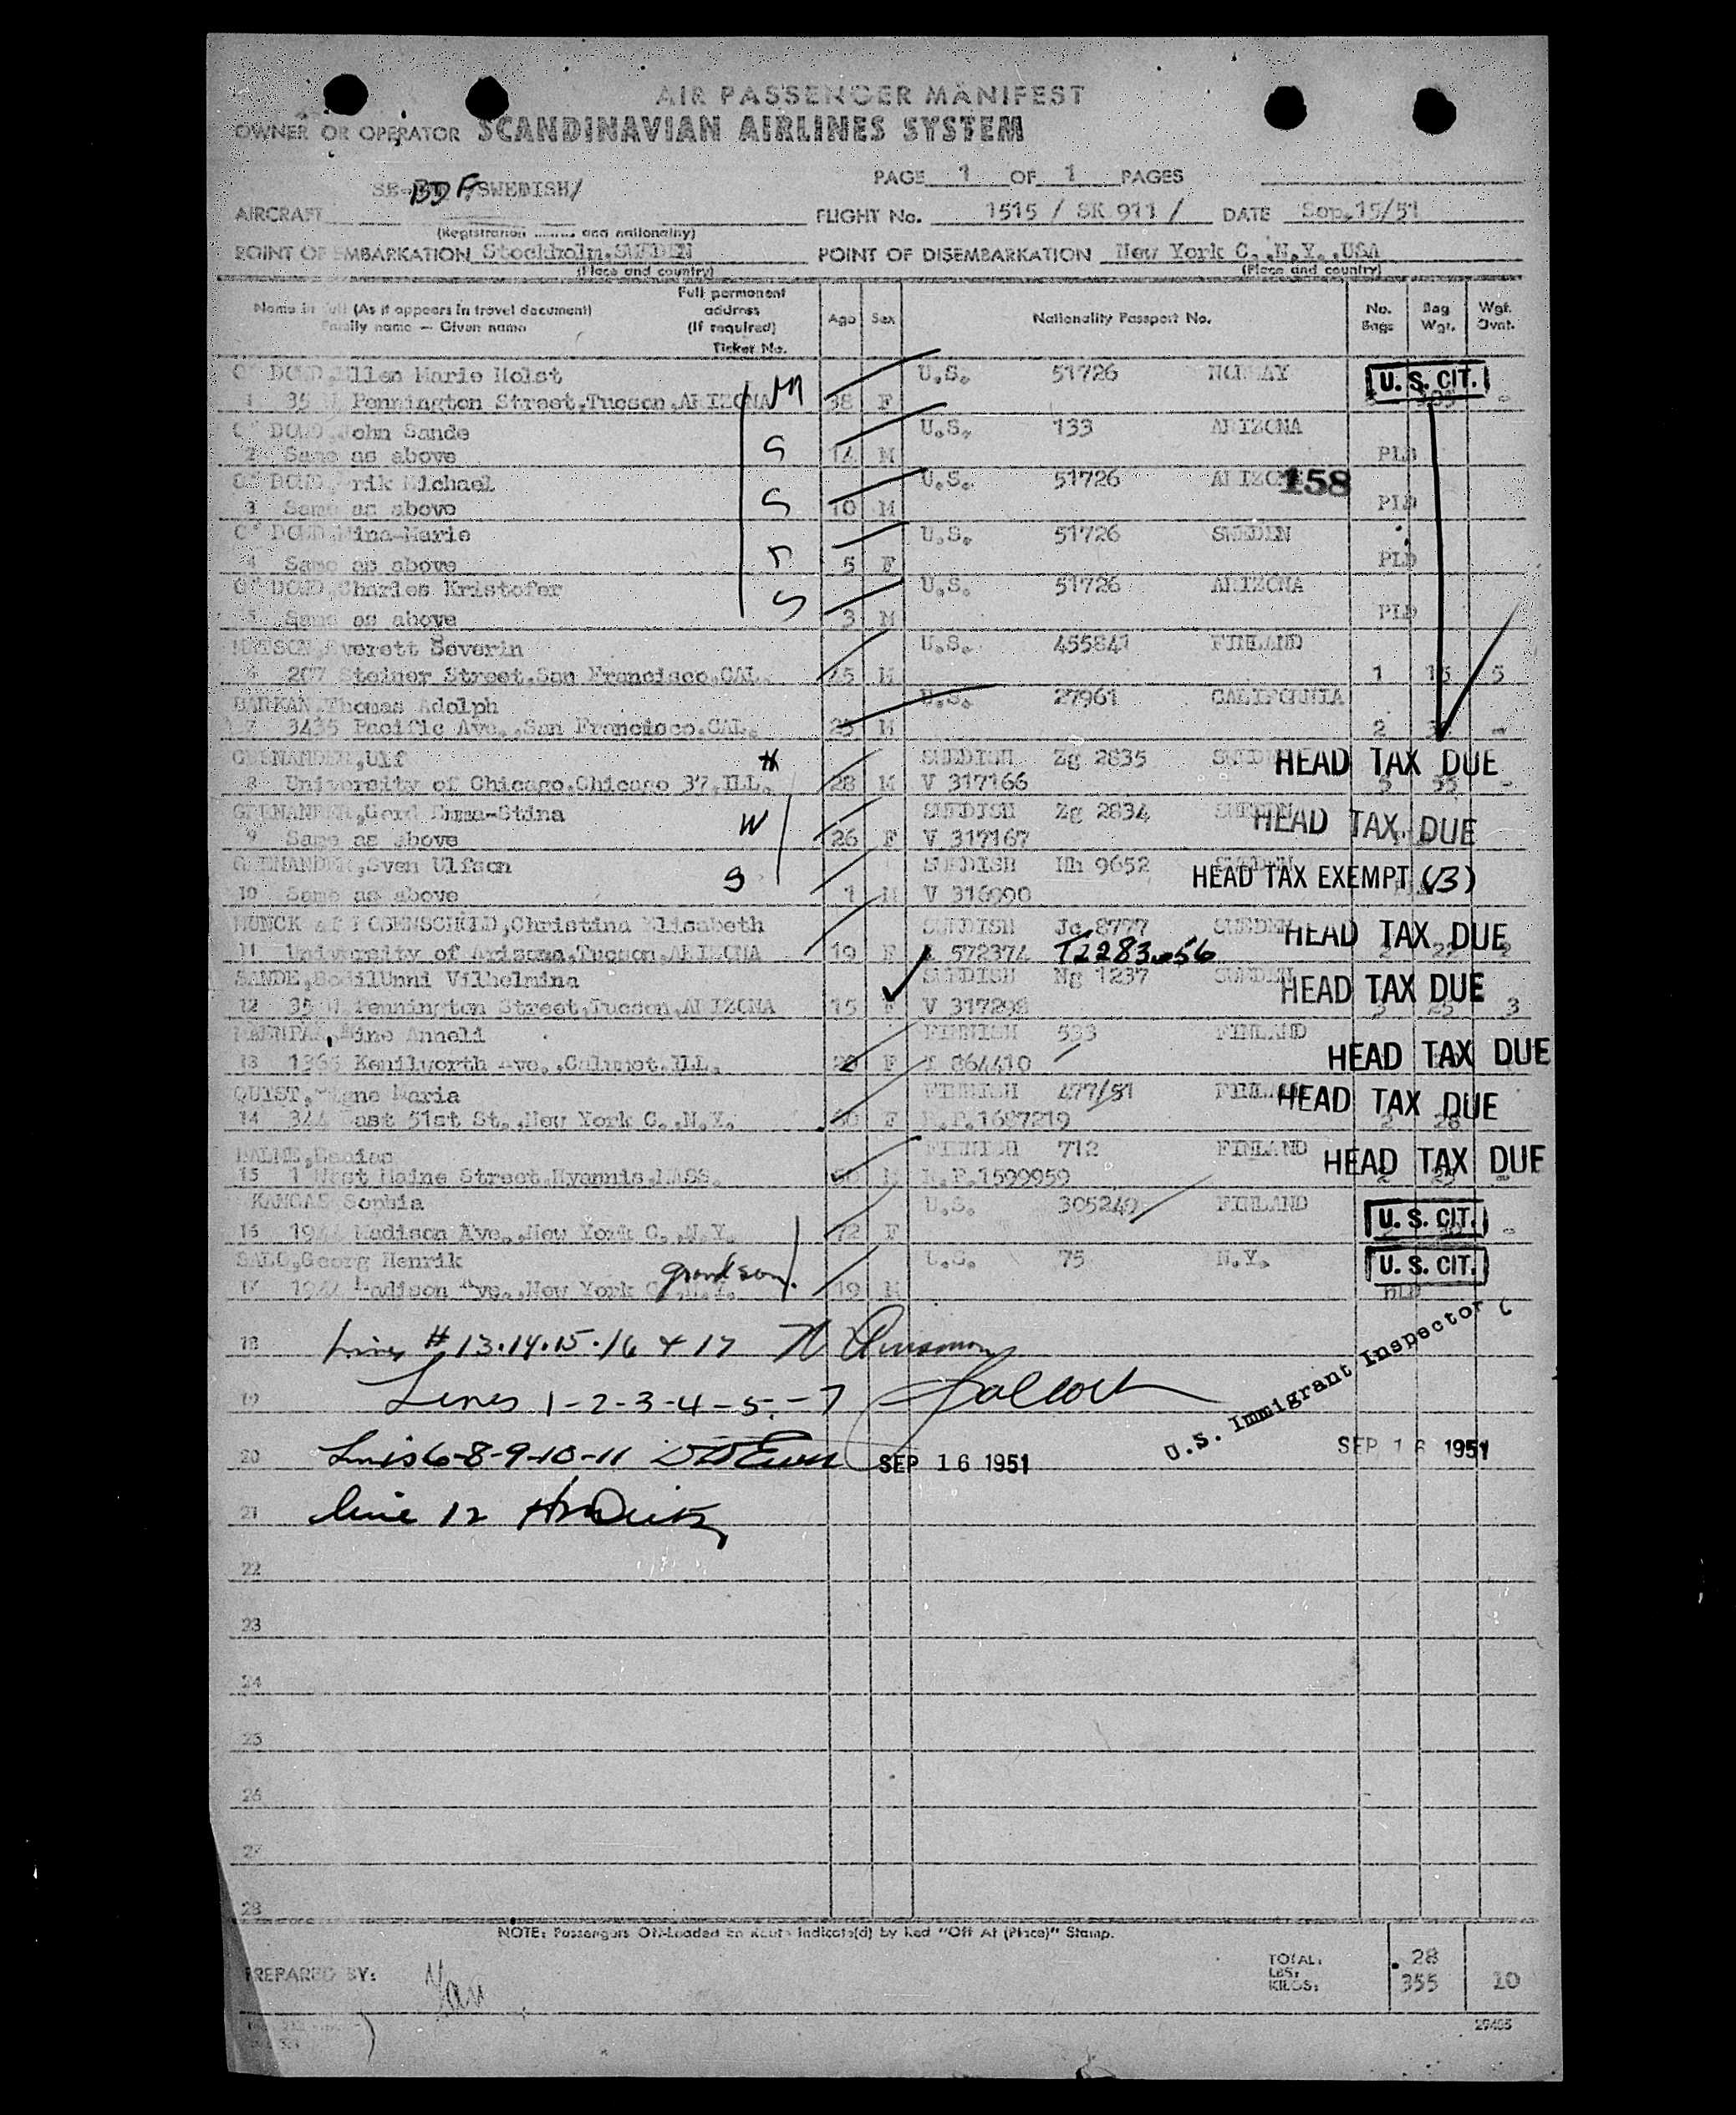 AIR PASSENGER MANIFEST
OWNER OR OPERATOR SCANDINAVIAN AIRLINES SYSTEM
PAGE 1 OF 1 PAGES
SE-BDF /SWEDISH/
AIRCRAFT FLIGHT No. 1515 / SK 911 / DATE Sep.15/51
(Registration and nationality)
POINT OF EMBARKATION Stockholm,SWEDEN POINT OF DISEMBARKATION New York C.,N.Y.,USA
(Place and country) (Place and country)
Name in full (As it appears in travel document) Full permanent address (If required) Age Sex Nationality Passport No. No. Bags Bag Wgt. Wgt. Ovnt.
Family name — Given name Ticket No.
O' DOWD,Ellen Marie Holst M U.S. 51726 NORWAY U. S. CIT.
1 35 W Pennington Street,Tucson,ARIZONA 38 F -
O' DOWD,John Sande U.S. 133 ARIZONA
2 Same as above S 14 M PLD
O' DOWD,Erik Michael U.S. 51726 ARIZONA 158
3 Same as above S 10 M PLD
O' DOWD,Nina-Marie U.S. 51726 SWEDEN
4 Same as above 5 F PLD
O' DOWD,Charles Kristofer U.S. 51726 ARIZONA
5 Same as above S 3 M PLD
Everett Severin U.S. 455841 FINLAND
6 207 Steiner Street,San Francisco,CAL. 45 M 1 15 5
BARKAN,Thomas Adolph U.S. 27961 CALIFORNIA
7 3435 Pacific Ave.,San Francisco.CAL. 23 M 2 -
GRENANDER,Ulf H SWEDISH Zg 2835 SWEDEN HEAD TAX DUE
8 University of Chicago,Chicago 37,ILL. 28 M V 317166 5 55 -
GRENANDER,Gerd Emma-Stina W SWEDISH Zg 2834 SWEDEN HEAD TAX DUE
9 Same as above 26 F V 317167
GRENANDER,Sven Ulfson S SWEDISH Hh 9652 SWEDEN HEAD TAX EXEMPT (13)
10 Same as above 1 M V 316990
MUNCK af ROSENSCHÖLD,Christina Elisabeth SWEDISH Jc 8777 SWEDEN HEAD TAX DUE
11 University of Arizona,Tucson,ARIZONA 19 F 572374 T2283056 2 22 2
SANDE,Bodil Unni Vilhelmina SWEDISH Ng 1237 SWEDEN HEAD TAX DUE
12 35 W Pennington Street,Tucson,ARIZONA 15 F V 317298 3 25 3
Aino Anneli FINNISH 533 FINLAND
13 1366 Kenilworth Ave.,Calumet,ILL. 20 F I 864410 HEAD TAX DUE
QUIST,Signe Maria FINNISH 477/51 FINLAND HEAD TAX DUE
14 344 East 51st St.,New York C.,N.Y. 50 F R.P.1687219 2 28
FINNISH 712 FINLAND HEAD TAX DUE
15 1 West Maine Street,Hyannis,MASS. M R.P.1599959 2 25 -
KANGAS,Sophia U.S. 305249 FINLAND U. S. CIT.
16 1944 Madison Ave.,New York C.,N.Y. 72 F -
SALO,Georg Henrik grandson. U.S. 75 N.Y. U. S. CIT.
17 1944 Madison Ave.,New York C.,N.Y. 19 M PLD
18 Lines # 13.14.15.16 & 17
19 Lines 1-2-3-4-5.-7
U.S. Immigrant Inspector
20 Lines 6-8-9-10-11 SEP 16 1951 SEP 16 1951
21 line 12
22
23
24
25
26
27
28
NOTE: Passengers Off-Loaded En Route Indicate(d) by Red "Off At (Place)" Stamp.
PREPARED BY: TOTAL: 28
LBS:
KILOS: 355 10
29485